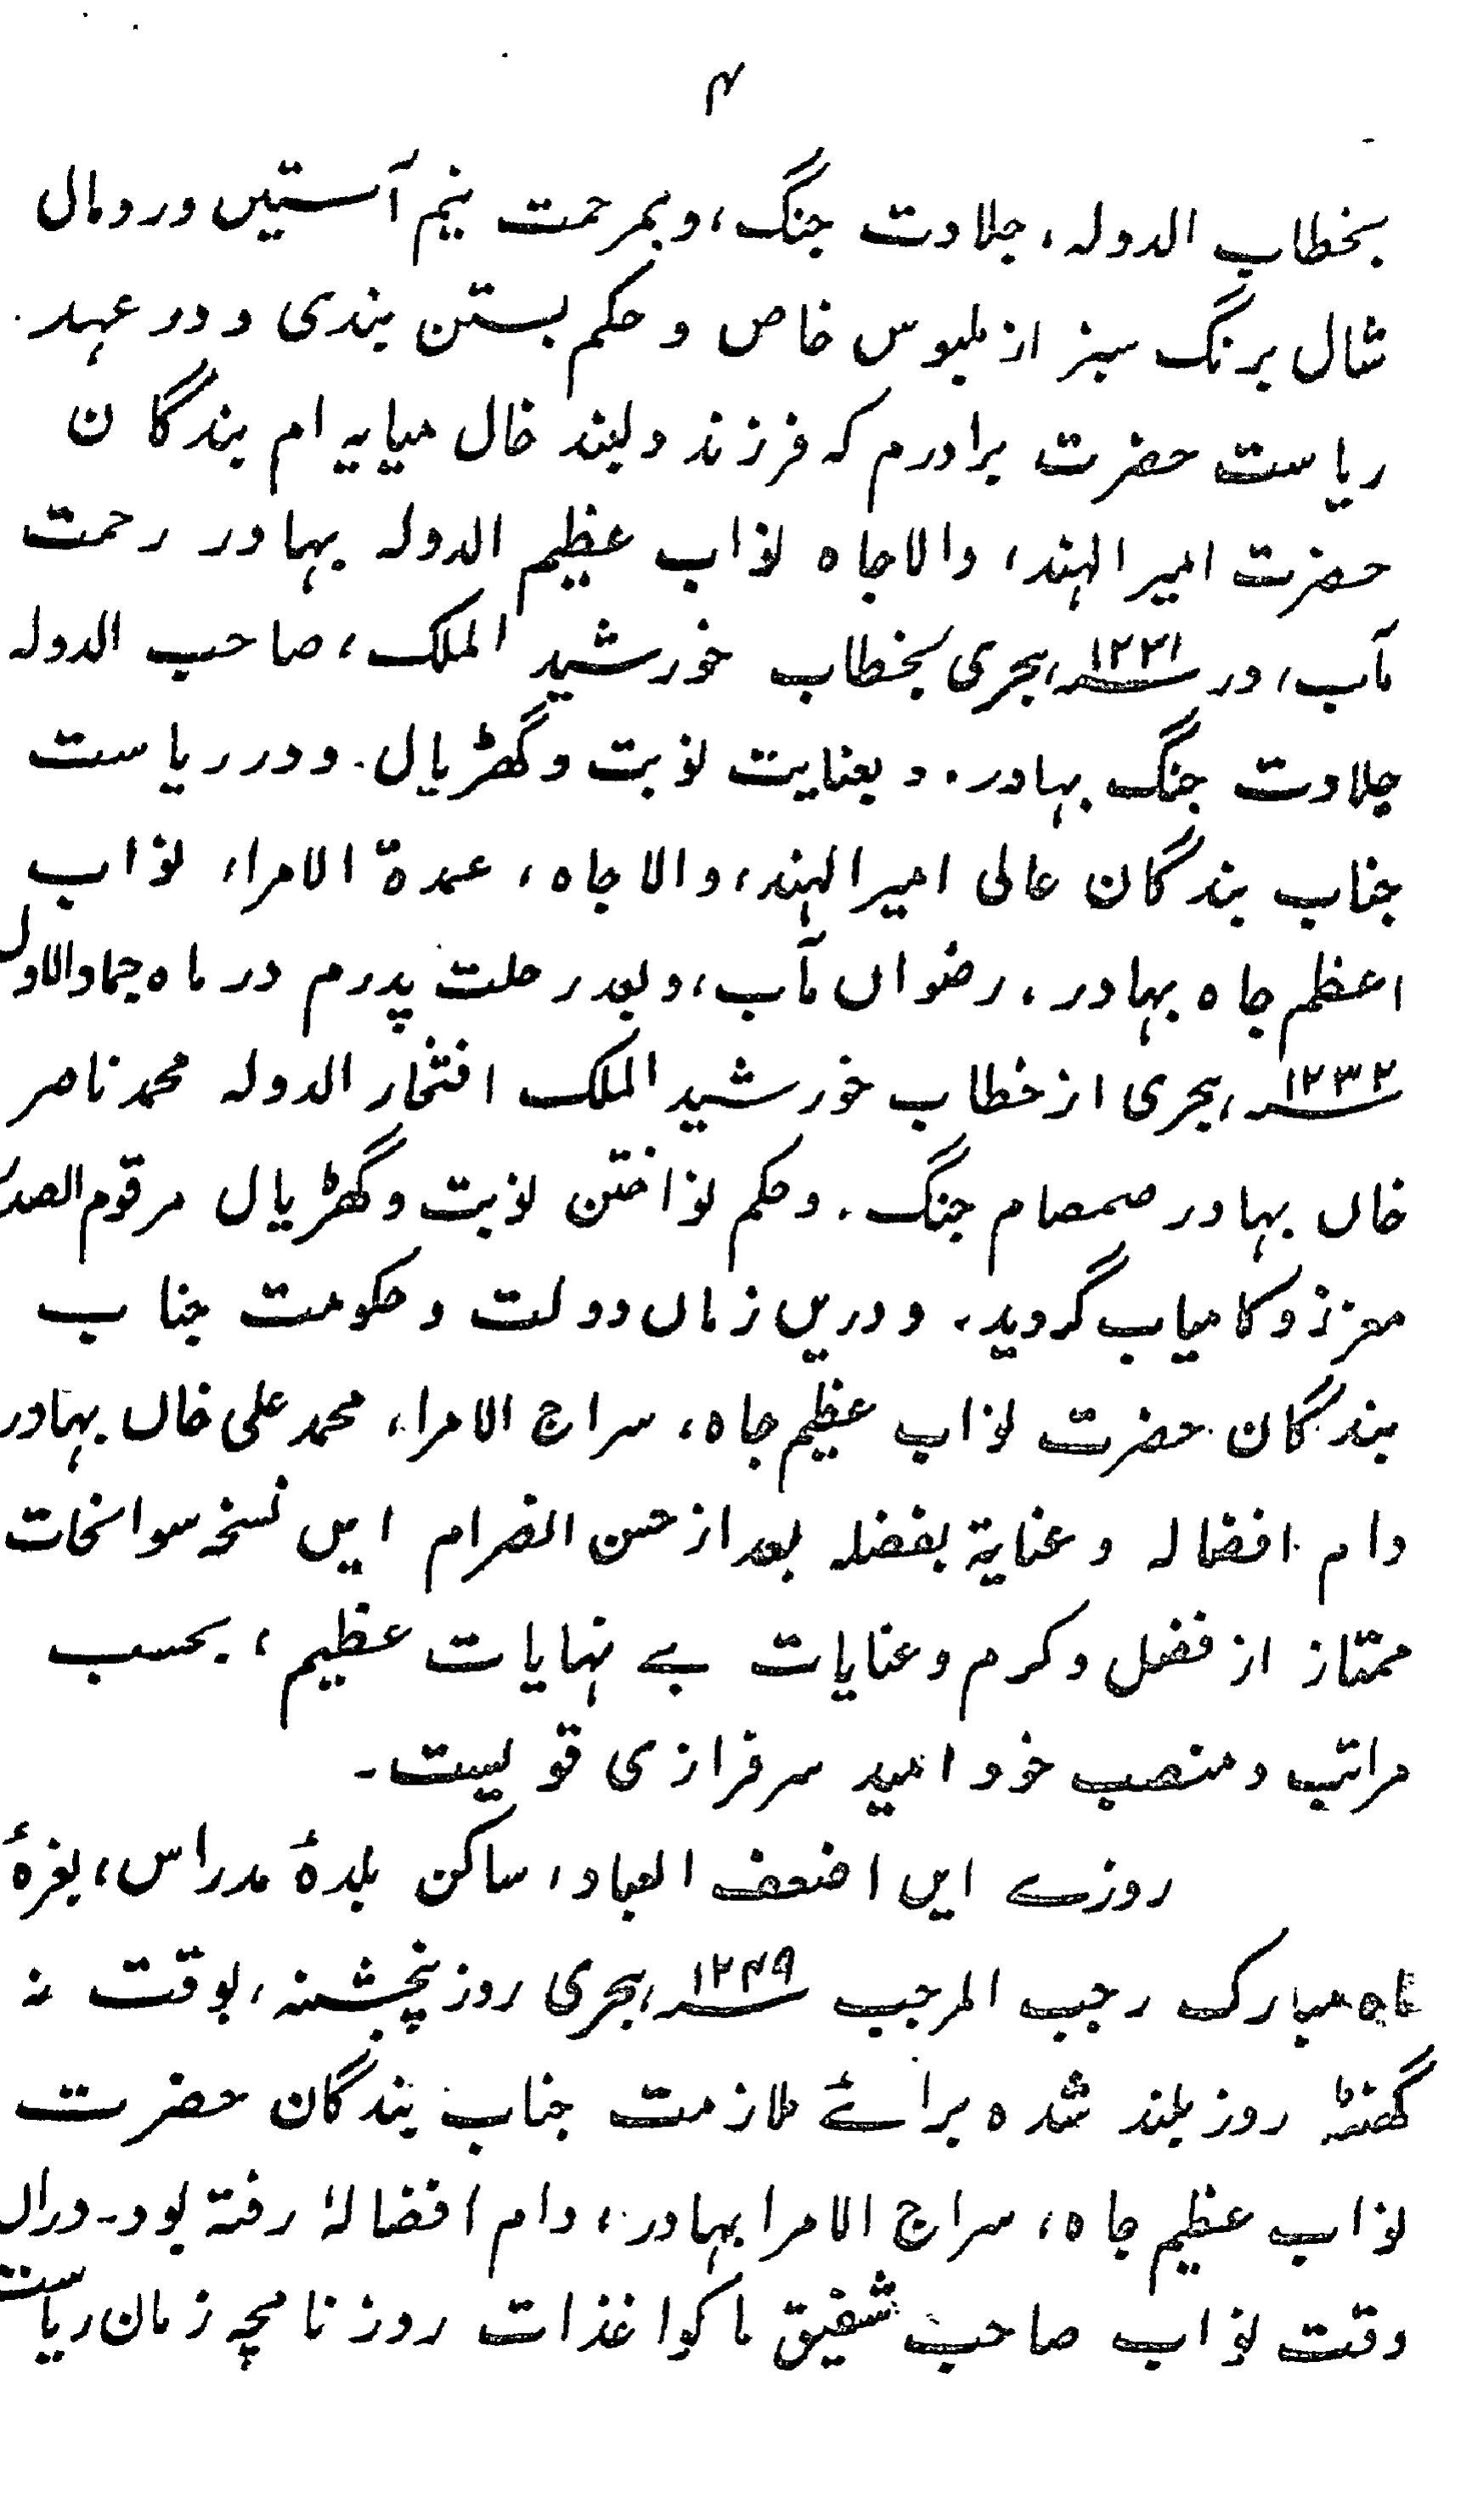 ۴
بخطاب الدولہ، جلادت جنگ، و بمرحمت نیم آستیں و رومال
شال برنگ سبز از ملبوس خاص و حکم بستن بندی و در عہد
ریاست حضرت برادرم کہ فرزند دلبند خال میایہ ام بندگان
حضرت امیر الہند، والا جاہ نواب عظیم الدولہ بہادر رحمت
مآب، در ۱۲۲۱؁ ہجری بخطاب خورشید الملک، صاحب الدولہ
جلادت جنگ بہادر. و بعنایت نوبت و گھڑیال. و در ریاست
جناب بندگان عالی امیر الہند، والا جاہ، عمدۃ الامرا، نواب
اعظم جاہ بہادر، رضواں مآب، و بعد رحلت پدرم در ماہ جماد الاول
۱۲۳۲؁ ہجری از خطاب خورشید الملک افتخار الدولہ محمد ناصر
خاں بہادر صمصام جنگ. و حکم نواختن نوبت و گھڑیال مرقوم الصدر
معزز و کامیاب گردید، و دریں زماں دولت و حکومت جناب
بندگان حضرت نواب عظیم جاہ، سراج الامرا، محمد علی خاں بہادر
دام افضالہ و عنایۃ بفضلہ بعد از حسن انصرام ایں نسخہ سوانحات
ممتاز از فضل و کرم و عنایات بے نہایات عظیم، بحسب
مراتب و منصب خود امید سرفرازی قولیست۔
روزے ایں اضعف العباد، ساکن بلدۂ مدراس، بغرۂ
ماہ مبارک رجب المرجب ۱۲۴۹؁ ہجری روز پنجشنبہ، بوقت نہ
گھنٹہ روز بلند شدہ برائے ملازمت جناب بندگان حضرت
نواب عظیم جاہ، سراج الامرا بہادر، دام افضالہٗ رفتہ بود۔ دراں
وقت نواب صاحب شفیق ما کواغذات روزنامچہ زمان ریاست